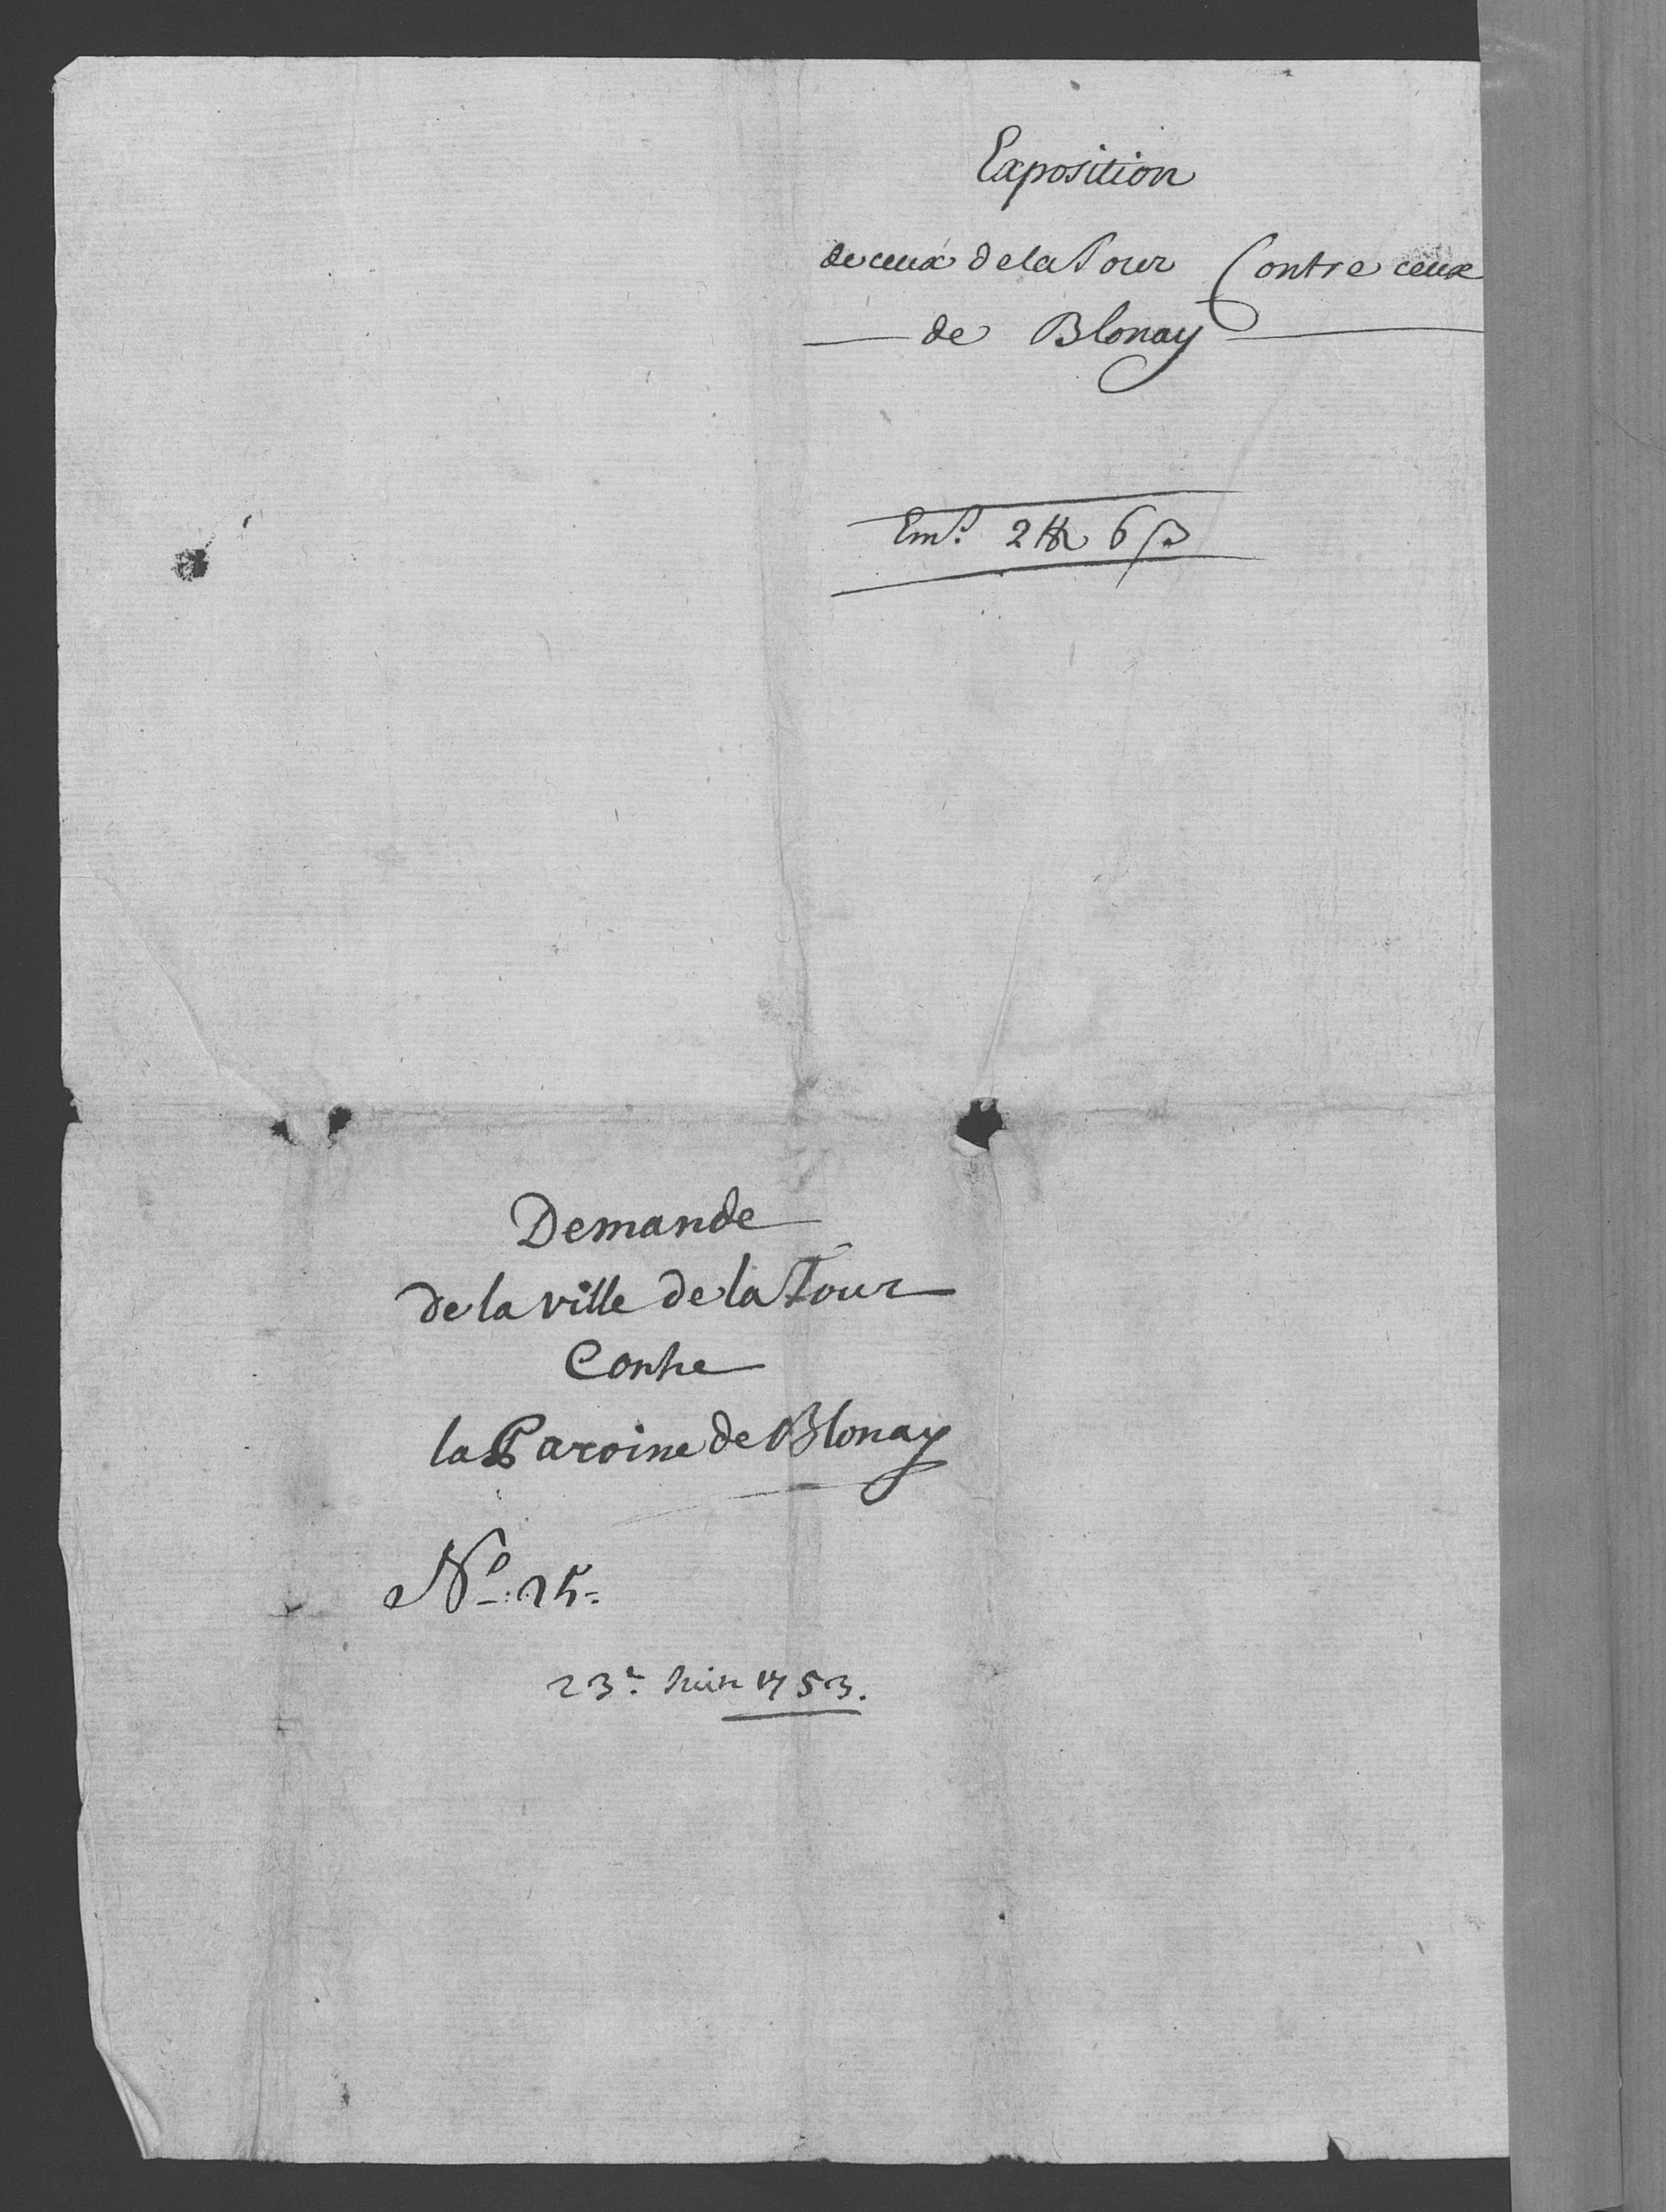 Exposition
de ceux de la Tour Contre ceux
de Blonay
Emt. 2 ff 6 ß
Demande
de la ville de la Tour
Contre
la Paroisse de Blonay
No. 25.
23e. Juin 1753.